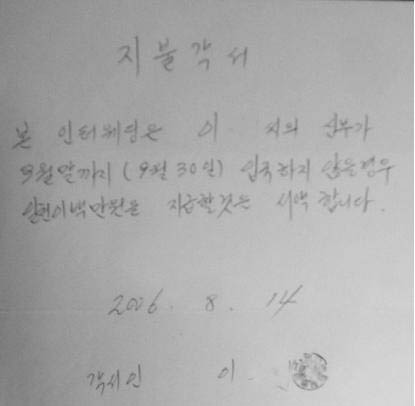 지불각서
본 인터웨딩은 이 씨의 신부가
9월말까지 (9월 30일) 입국하지 않을경우
일천이백만원을 지급할것은 서약합니다.
2006. 8. 14
각서인 이